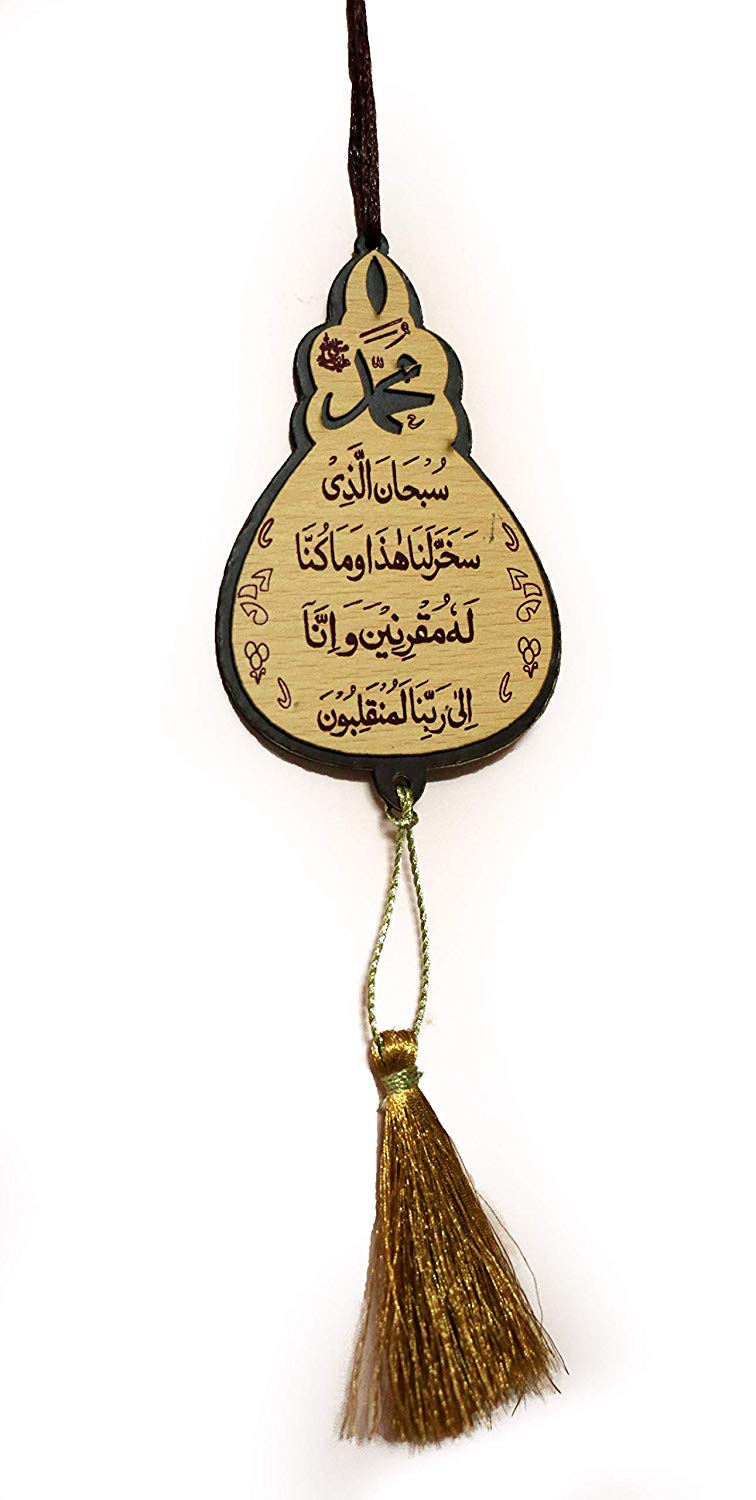 محمد
صلى الله عليه وسلم
سُبْحَانَ الَّذِیْ
سَخَّرَ لَنَا هٰذَا وَمَا كُنَّا
لَهٗ مُقْرِنِيْنَ وَ اِنَّاۤ
اِلىٰ رَبِّنَا لَمُنْقَلِبُوْنَ